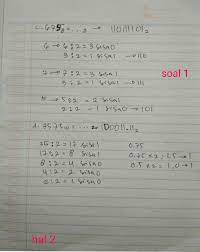 c. 675₈ = ... ₂ → 110111101₂
6 → 6 : 2 = 3 sisa 0
3 : 2 = 1 sisa 1 → 110
7 → 7 : 2 = 3 sisa 1
soal 1
3 : 2 = 1 sisa 1 → 111
5 : 2 = 2 sisa 1
2 : 2 = 1 sisa 0 → 101
35 : 2 = 17 sisa 1 0.75
17 : 2 = 8 sisa 1 0.75 x 2 = 1,5 → 1
8 : 2 = 4 sisa 0 0.5 x 2 = 1,0 → 1
4 : 2 = 2 sisa 0
2 : 2 = 1 sisa 0
hal 2